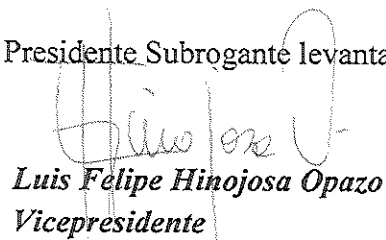 Presidente Subrogante levanta
Hinojosa
Luis Felipe Hinojosa Opazo
Vicepresidente